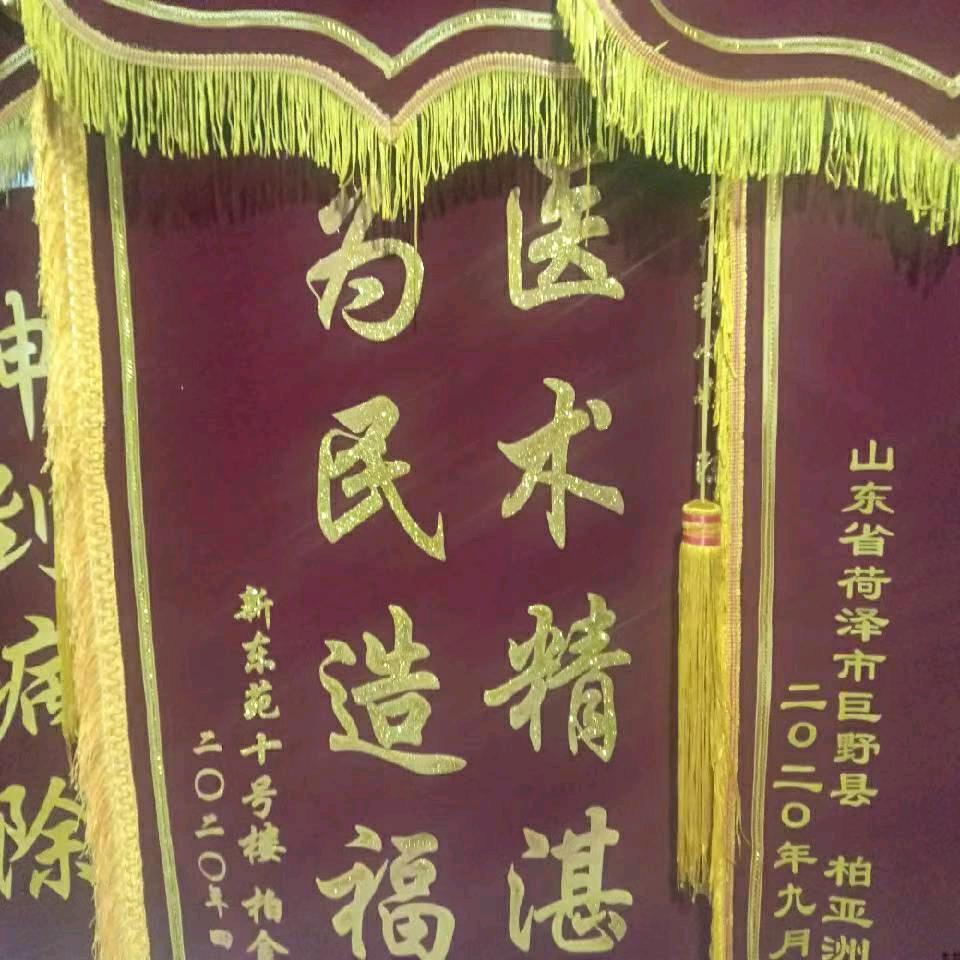 医术精湛
为民造福
新东苑十号楼 柏金
二〇二〇年四
山东省荷泽市巨野县 柏亚洲
二〇二〇年九月
到病除